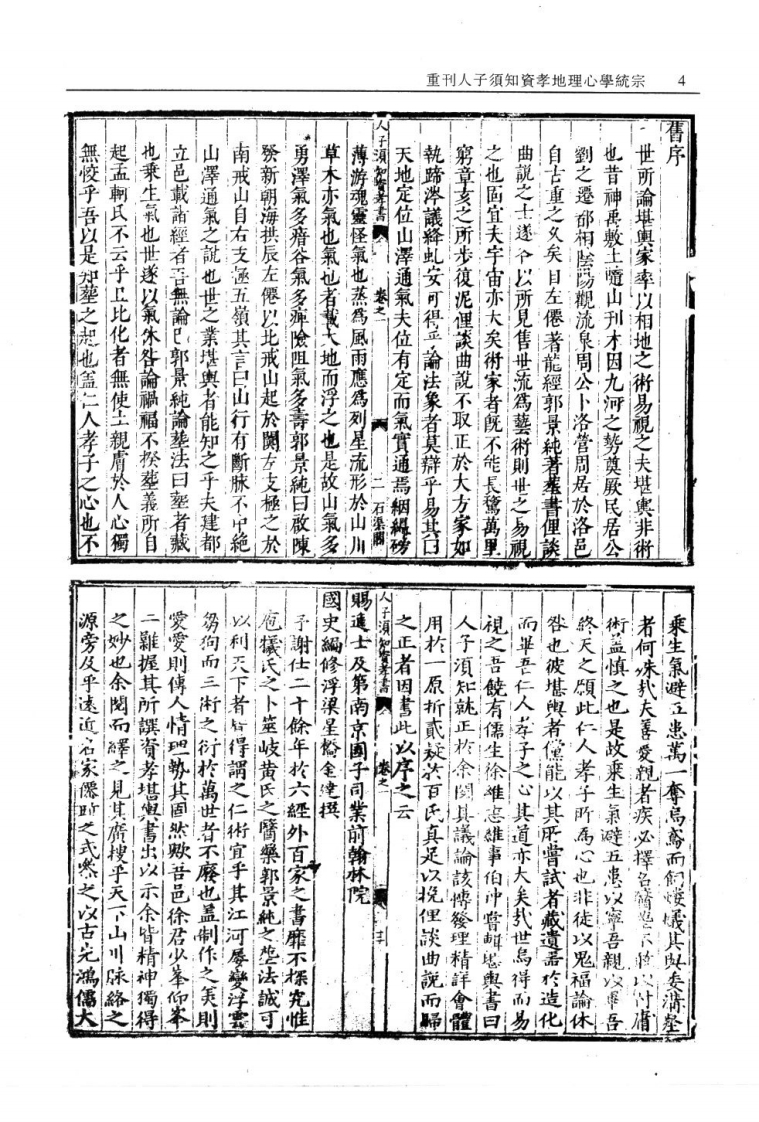 重刊人子須知資孝地理心學統宗 4
舊序
世所論堪輿家率以相地之術易視之夫堪輿非術
也昔神禹敷土隨山刊木因九河之勢奠厥民居公
劉之遷邰相陰陽觀流泉周公卜洛營周居於洛邑
自古重之久矣自左僊著龍經郭景純著塟書俚談
曲說之士遂各以所見售世流爲藝術則世之易視
之也固宜夫宇宙亦大矣術家者旣不能長驚萬里
窮章亥之所步復泥俚談曲說不取正於大方家如
執蹄涔議絳虬安可得乎論法象者莫辯乎易其曰
天地定位山澤通氣夫位有定而氣實通焉絪縕磅
人子須知資孝書 卷之一 二 石渠閣
薄游魂靈怪氣也蒸爲風雨應爲列星流形於山川
草木亦氣也氣也者載大地而浮之也是故山氣多
勇澤氣多瘖谷氣多痺險阻氣多壽郭景純曰啟陳
發新朝海拱辰左僊以北戒山起於闕左支極之於
南戒山自右支極五嶺其言曰山行有斷脉不中絶
山澤通氣之說也世之業堪輿者能知之乎夫建都
立邑載諸經者吾無論已郭景純論塟法曰塟者藏
也乘生氣也世遂以氣休咎論禍福不揆塟義所自
起孟軻氏不云乎且比化者無使土親膚於人心獨
無恔乎吾以是知塟之起也蓋仁人孝子之心也不
乘生氣避五患萬一奪烏鳶而飼螻蟻其與委溝壑
者何殊㢤夫善愛親者疾必擇名醫
術蓋慎之也是故乘生氣避五患以寧吾親以畢吾
終天之願此仁人孝子所爲心也非徒以鬼福論休
咎也彼堪輿者儻能以其所嘗試者藏遺器於造化
而畢吾仁人孝子之心其道亦大矣㢤世烏得而易
視之吾饒有儒生徐維志維事伯仲嘗輯堪輿書曰
人子須知就正於余閱其議論該博發理精詳會體
用於一原折貳疑於百氏真足以挽俚談曲說而歸
之正者因書此以序之云
人子須知資孝書 卷之一 三
賜進士及第南京國子司業前翰林院
國史編修浮梁星橋金達撰
予謝仕二十餘年於六經外百家之書靡不探究惟
庖犧氏之卜筮岐黃氏之醫藥郭景純之塟法誠可
以利天下者皆得謂之仁術宜乎其江河屢變浮雲
芻狗而三術之衍於萬世者不廢也盖制作之美則
愛愛則傳人情理勢其固然歟吾邑徐君少峯仰峯
二難握其所譔資孝堪輿書出以示余皆精神獨得
之妙也余閱而繹之見其廣搜乎天下山川脉絡之
源旁及乎遠近名家僊師之式叅之以古先鴻儒大